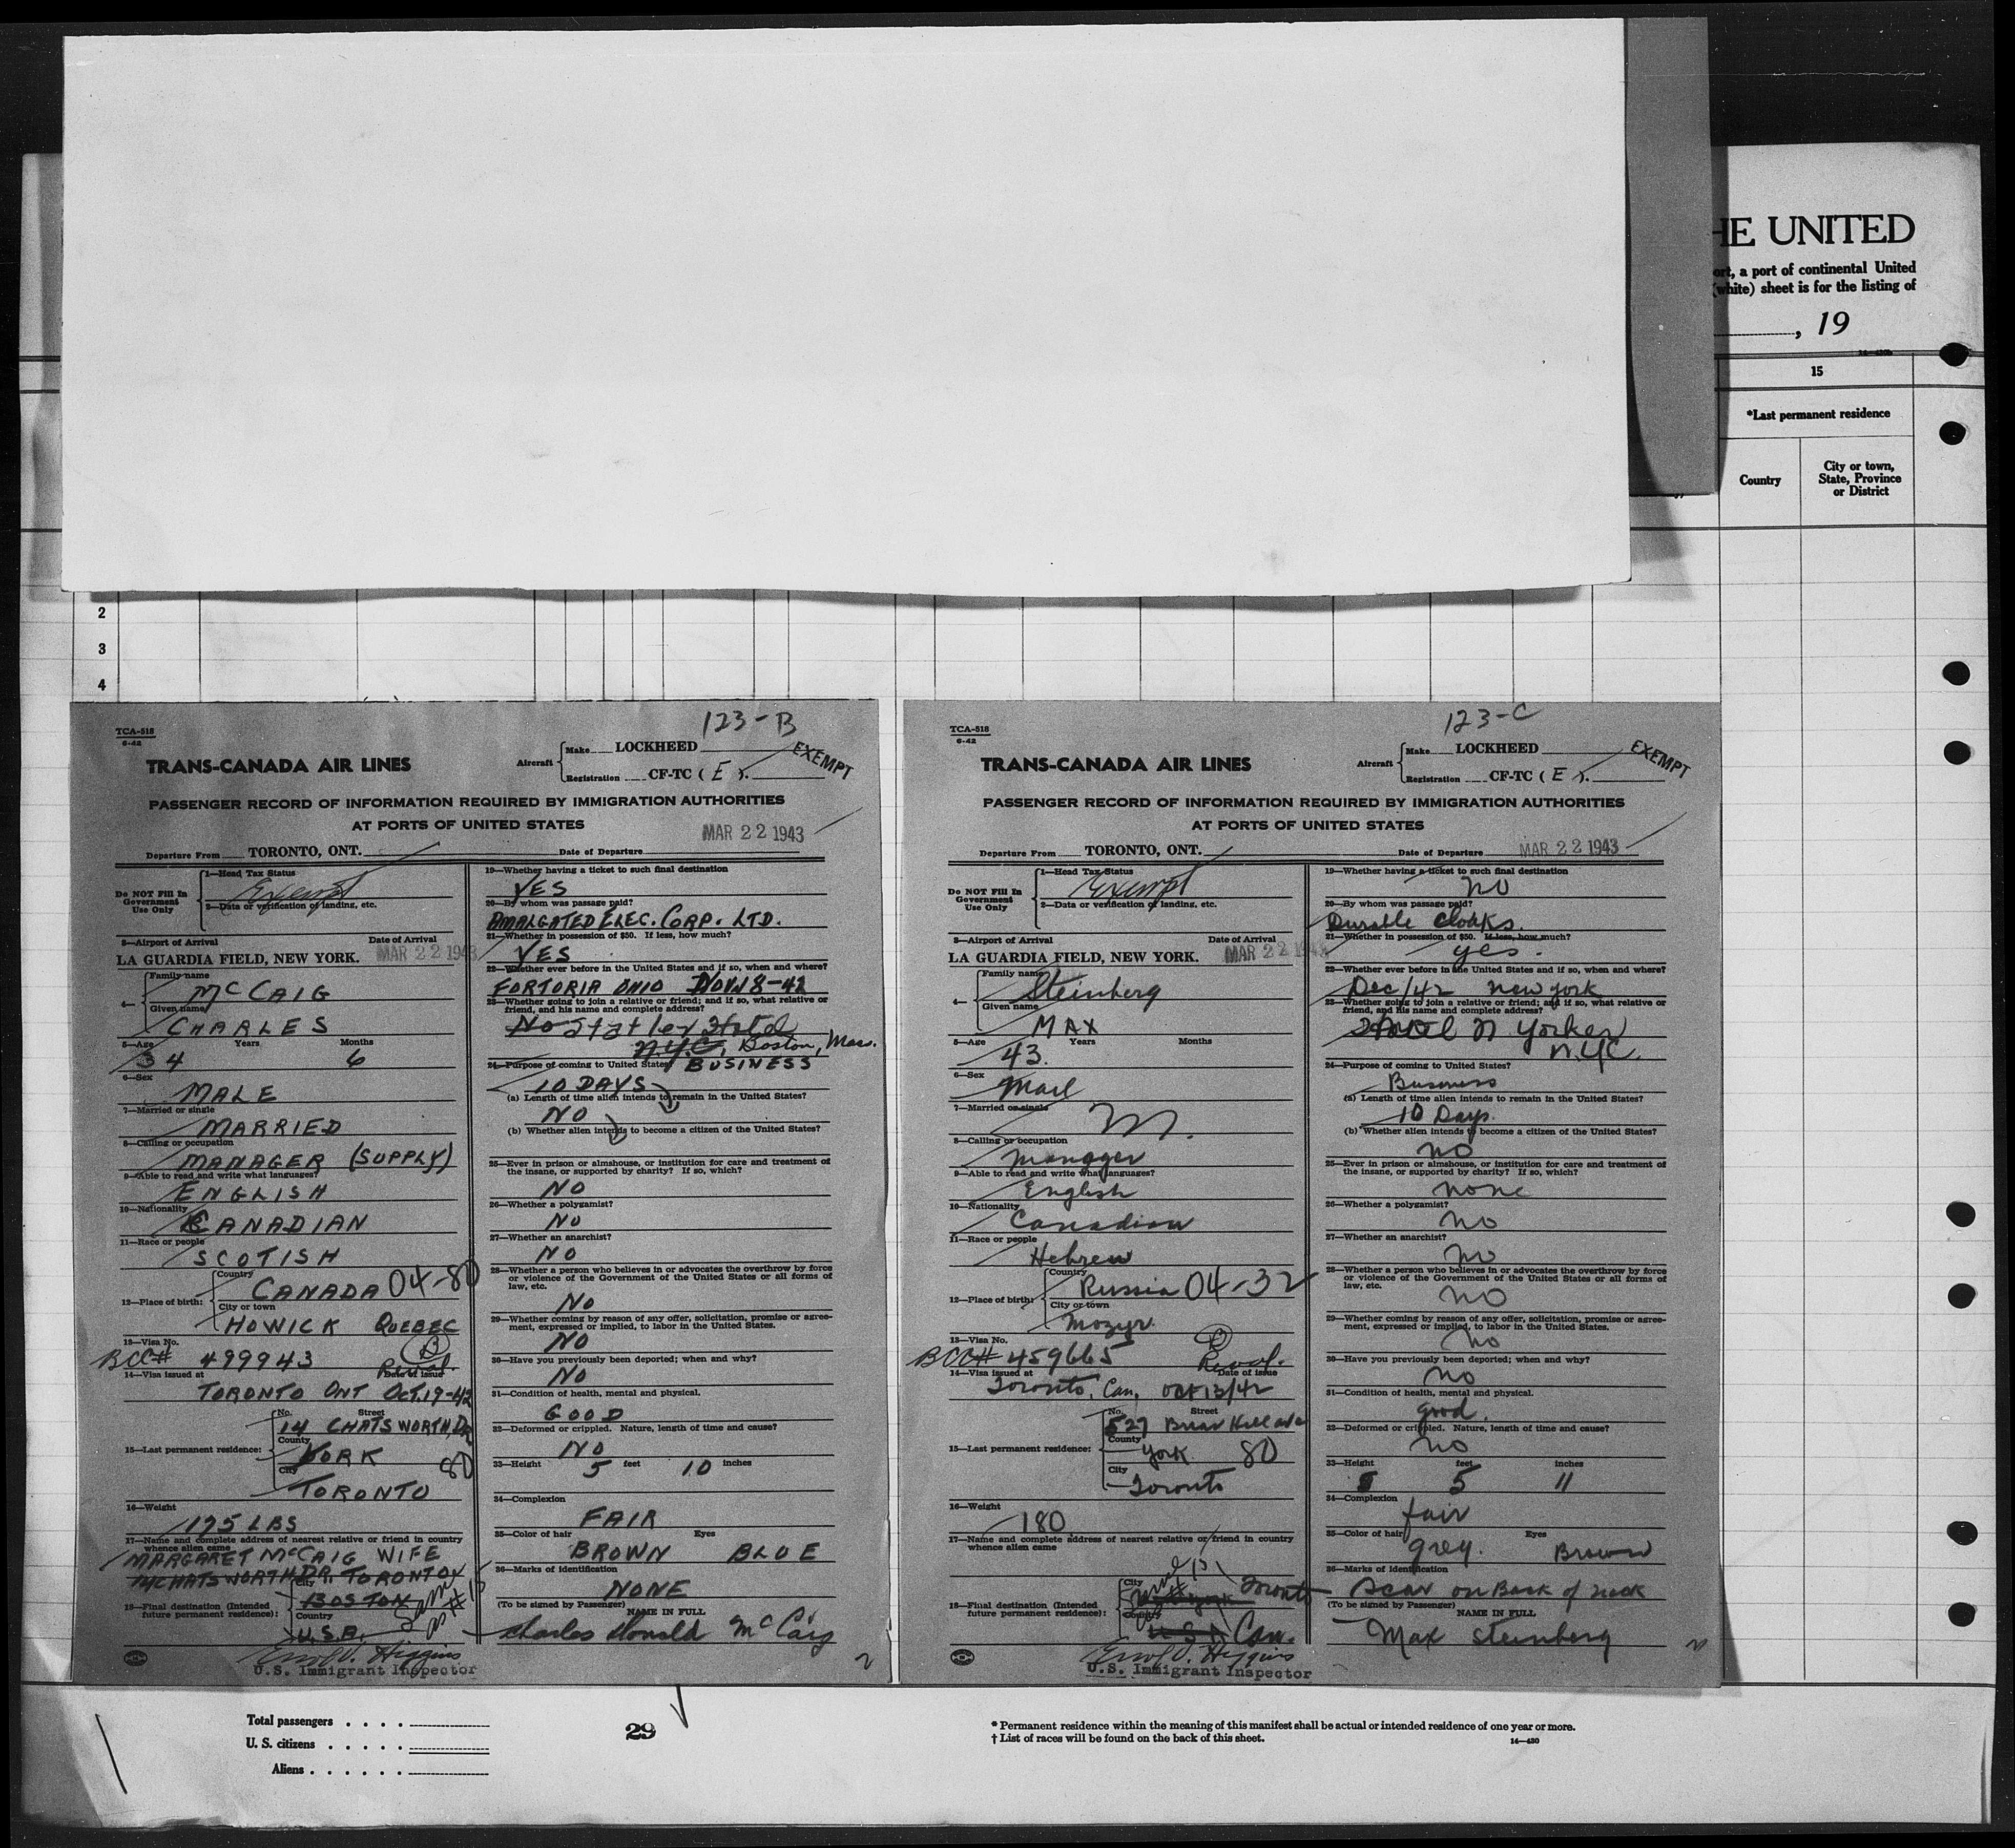 HE UNITED
ort, a port of continental United
(white) sheet is for the listing of
, 19
15
*Last permanent residence
Country
City or town,
State, Province
or District
2
3
4
123-B
TCA-518
6-42
TRANS-CANADA AIR LINES
Aircraft
Make LOCKHEED
Registration CF-TC ( E ).
EXEMPT
PASSENGER RECORD OF INFORMATION REQUIRED BY IMMIGRATION AUTHORITIES
AT PORTS OF UNITED STATES
MAR 22 1943
Departure From TORONTO, ONT.
Date of Departure
Do NOT Fill In
Government
Use Only
1—Head Tax Status
Exempt
2—Data or verification of landing, etc.
3—Airport of Arrival Date of Arrival
LA GUARDIA FIELD, NEW YORK. MAR 22 1943
4—
Family name
McCAIG
Given name
CHARLES
5—Age Years Months
34 6
6—Sex
MALE
7—Married or single
MARRIED
8—Calling or occupation
MANAGER (SUPPLY)
9—Able to read and write what languages?
ENGLISH
10—Nationality
CANADIAN
11—Race or people
SCOTISH
12—Place of birth:
Country
CANADA 04-80
City or town
HOWICK QUEBEC
13—Visa No.
BCC# 499943
14—Visa issued at Date of issue
TORONTO ONT OCT.19-42
15—Last permanent residence:
No. Street
14 CHATSWORTH, DR
County
YORK 80
City
TORONTO
16—Weight
175 LBS
17—Name and complete address of nearest relative or friend in country
whence alien came
MARGARET McCAIG WIFE
14 CHATSWORTH DR. TORONTO
18—Final destination (Intended
future permanent residence):
City
BOSTON
Country
U.S.A.
Same as #15
Errol D. Higgins
U.S. Immigrant Inspector
19—Whether having a ticket to such final destination
YES
20—By whom was passage paid?
AMALGATED ELEC. CORP. LTD.
21—Whether in possession of $50. If less, how much?
YES
22—Whether ever before in the United States and if so, when and where?
FORTORIA OHIO NOV. 18-42
23—Whether going to join a relative or friend; and if so, what relative or
friend, and his name and complete address?
No Statler Hotel
N.Y.C. Boston, Mass.
24—Purpose of coming to United States? BUSINESS
10 DAYS
(a) Length of time alien intends to remain in the United States?
NO
(b) Whether alien intends to become a citizen of the United States?
25—Ever in prison or almshouse, or institution for care and treatment of
the insane, or supported by charity? If so, which?
NO
26—Whether a polygamist?
NO
27—Whether an anarchist?
NO
28—Whether a person who believes in or advocates the overthrow by force
or violence of the Government of the United States or all forms of
law, etc.
NO
29—Whether coming by reason of any offer, solicitation, promise or agree-
ment, expressed or implied, to labor in the United States.
NO
30—Have you previously been deported; when and why?
NO
31—Condition of health, mental and physical.
GOOD
32—Deformed or crippled. Nature, length of time and cause?
NO
33—Height 5 feet 10 inches
34—Complexion
FAIR
35—Color of hair Eyes
BROWN BLUE
36—Marks of identification
NONE
(To be signed by Passenger) NAME IN FULL
Charles Donald McCaig
2
123-C
TCA-518
6-42
TRANS-CANADA AIR LINES
Aircraft
Make LOCKHEED
Registration CF-TC ( E ).
EXEMPT
PASSENGER RECORD OF INFORMATION REQUIRED BY IMMIGRATION AUTHORITIES
AT PORTS OF UNITED STATES
Departure From TORONTO, ONT.
Date of Departure MAR 22 1943
Do NOT Fill In
Government
Use Only
1—Head Tax Status
Exempt
2—Data or verification of landing, etc.
3—Airport of Arrival Date of Arrival
LA GUARDIA FIELD, NEW YORK. MAR 22 1943
4—
Family name
Steinberg
Given name
MAX
5—Age Years Months
43.
6—Sex
Mael
7—Married or single
M.
8—Calling or occupation
Manager
9—Able to read and write what languages?
English
10—Nationality
Canadian
11—Race or people
Hebrew
12—Place of birth:
Country
Russia 04-32
City or town
Mozyr.
13—Visa No.
BCC# 459665
14—Visa issued at Date of issue
Toronto, Can. Oct 13/42
15—Last permanent residence:
No. Street
527 Briar Hill ave
County
York 80
City
Toronto
16—Weight
180
17—Name and complete address of nearest relative or friend in country
whence alien came
18—Final destination (Intended
future permanent residence):
City
New York Toronto
Country
U S A Can.
Errol D. Higgins
U.S. Immigrant Inspector
19—Whether having a ticket to such final destination
no
20—By whom was passage paid?
Durable Cloaks.
21—Whether in possession of $50. If less, how much?
yes.
22—Whether ever before in the United States and if so, when and where?
Dec/42 New York
23—Whether going to join a relative or friend; and if so, what relative or
friend, and his name and complete address?
Hotel N Yorker
N.Y.C.
24—Purpose of coming to United States?
Business
(a) Length of time alien intends to remain in the United States?
10 Days.
(b) Whether alien intends to become a citizen of the United States?
no
25—Ever in prison or almshouse, or institution for care and treatment of
the insane, or supported by charity? If so, which?
none
26—Whether a polygamist?
no
27—Whether an anarchist?
no
28—Whether a person who believes in or advocates the overthrow by force
or violence of the Government of the United States or all forms of
law, etc.
no
29—Whether coming by reason of any offer, solicitation, promise or agree-
ment, expressed or implied, to labor in the United States.
no
30—Have you previously been deported; when and why?
no
31—Condition of health, mental and physical.
good.
32—Deformed or crippled. Nature, length of time and cause?
no
33—Height feet inches
5 11
34—Complexion
fair
35—Color of hair Eyes
grey. Brown
36—Marks of identification
Scar on Back of neck
(To be signed by Passenger) NAME IN FULL
Max Steinberg
Total passengers . . . .
U. S. citizens . . . . .
Aliens . . . . . .
29
* Permanent residence within the meaning of this manifest shall be actual or intended residence of one year or more.
† List of races will be found on the back of this sheet.
14—430